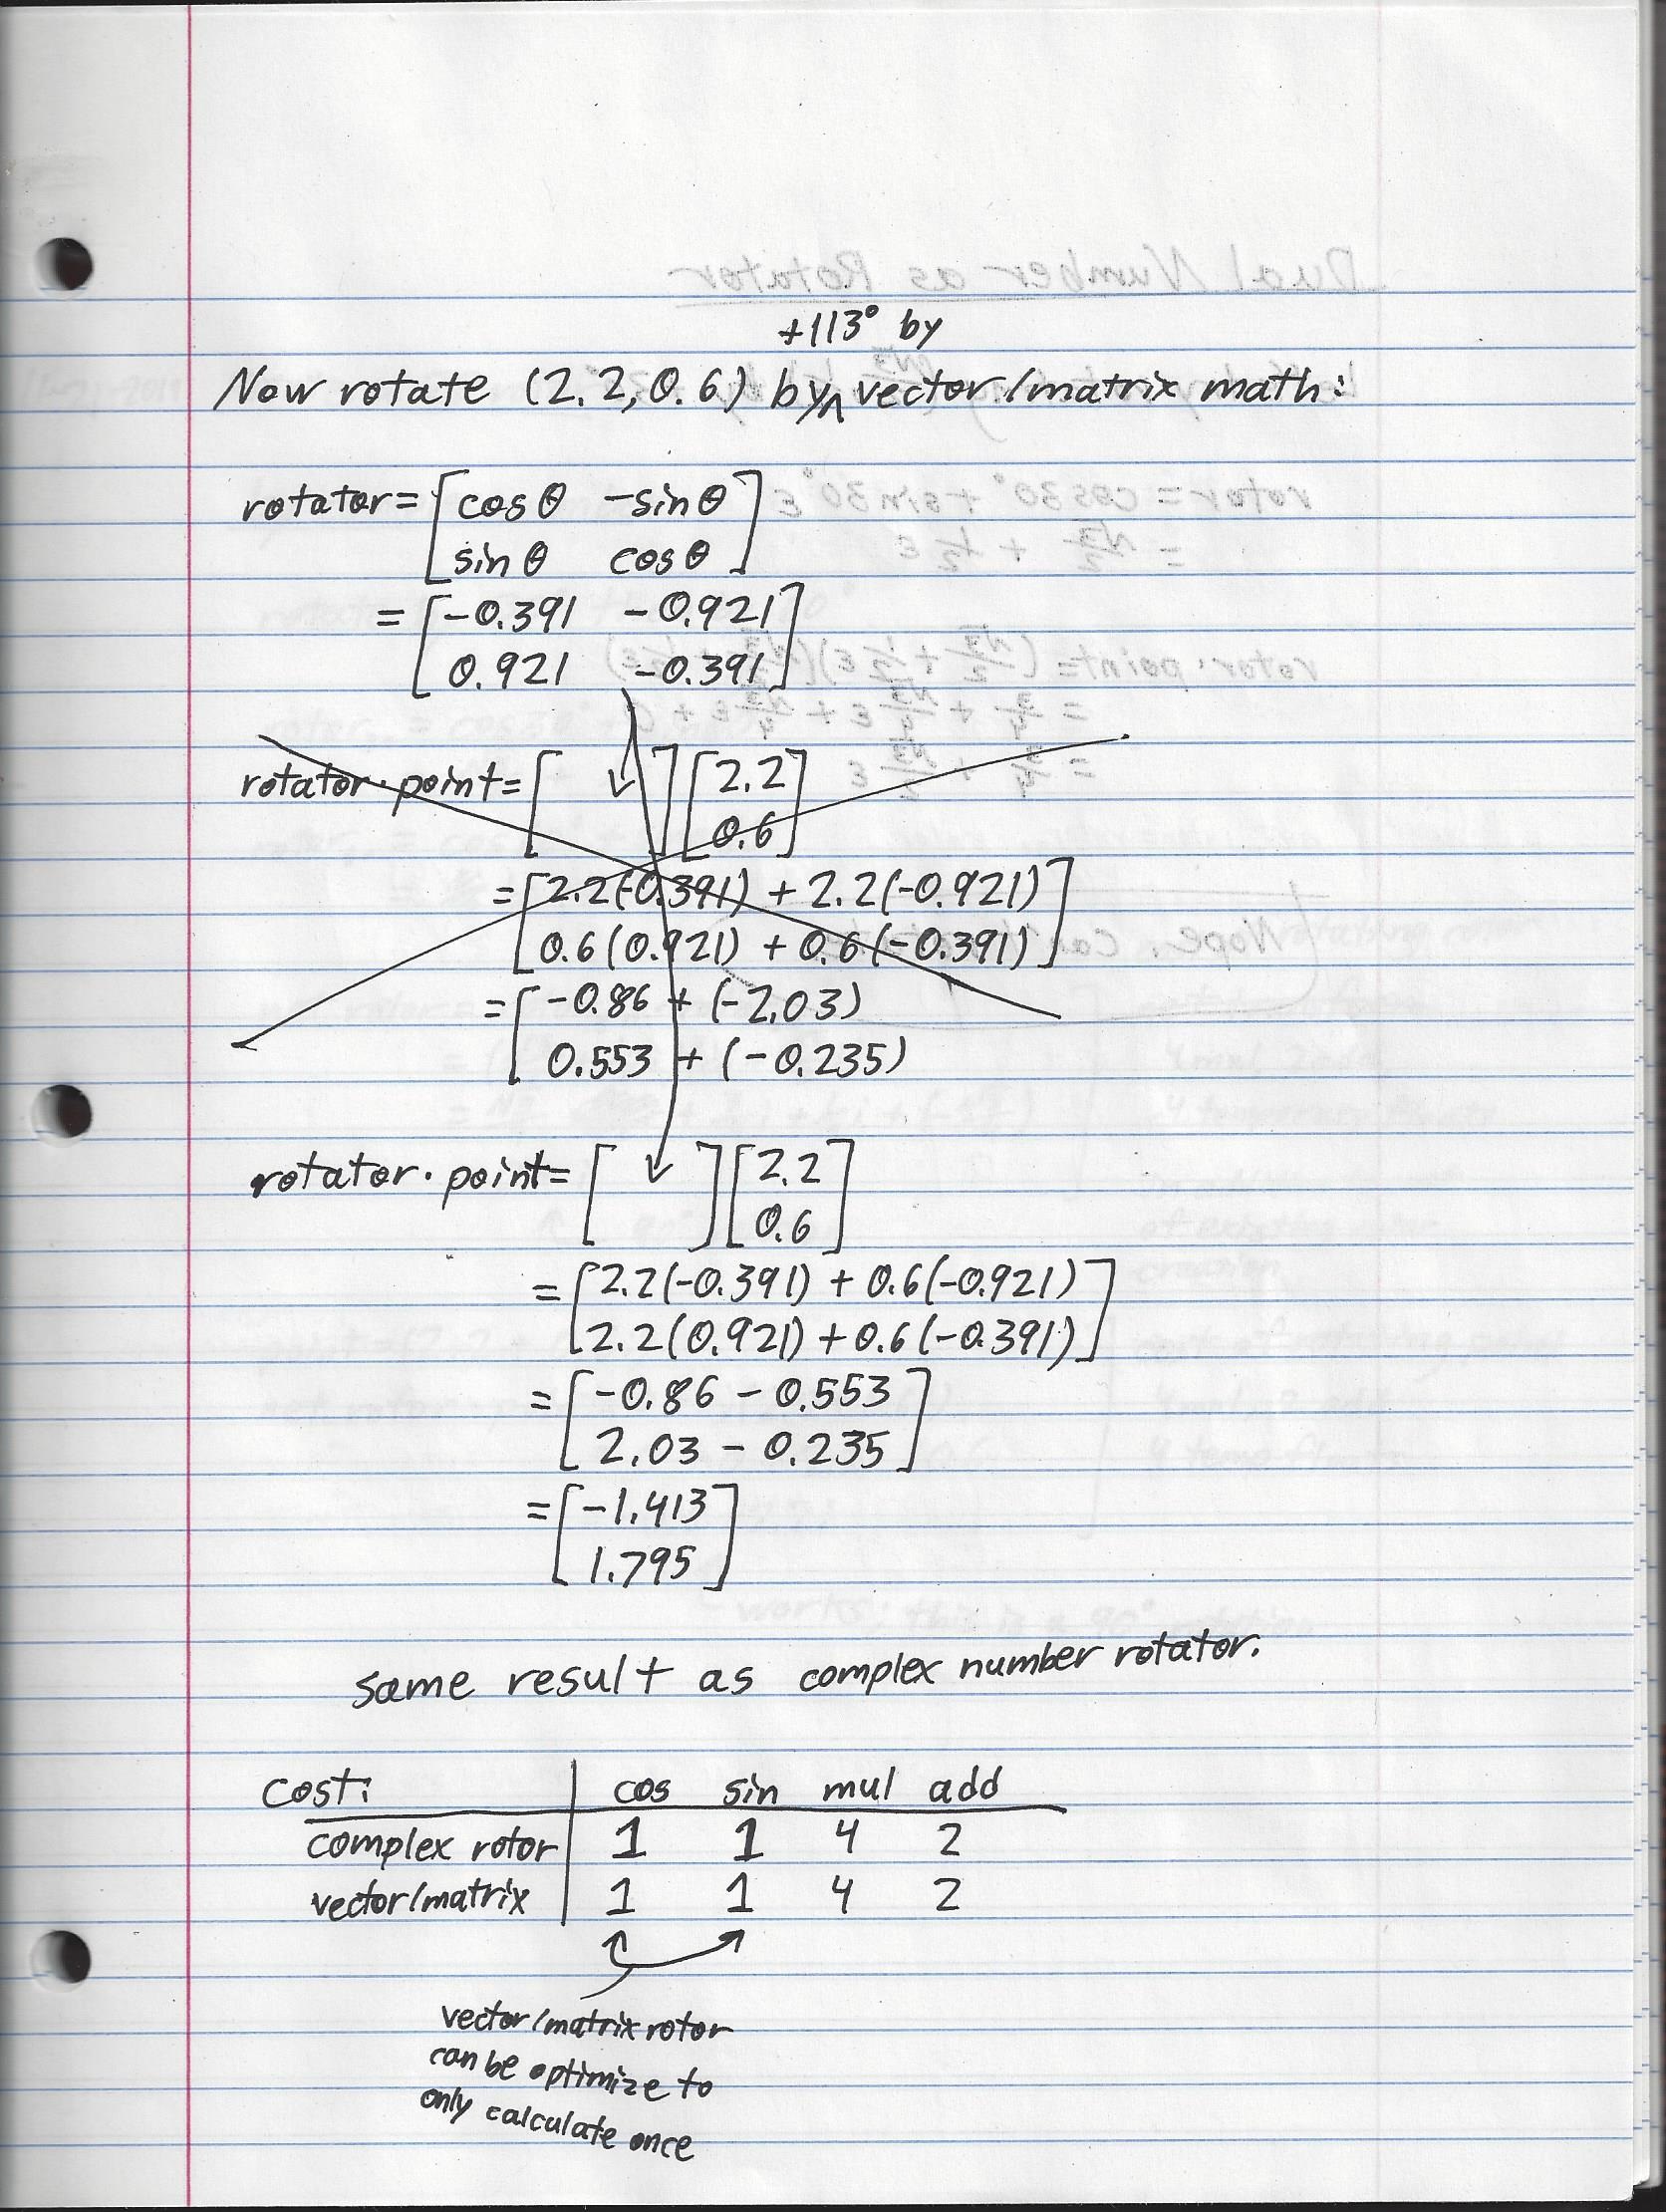 +113° by
Now rotate (2.2, 0.6) by^ vector/matrix math:
rotator = [cosθ -sinθ
sinθ cosθ]
= [-0.391 -0.921
0.921 -0.391]
rotator · point = [ ↓ ] [2.2
0.6]
= [2.2(-0.391) + 2.2(-0.921)
0.6(0.921) + 0.6(-0.391)]
= [-0.86 + (-2.03)
0.553 + (-0.235)
rotator · point = [ ↓ ] [2.2
0.6]
= [2.2(-0.391) + 0.6(-0.921)
2.2(0.921) + 0.6(-0.391)]
= [-0.86 - 0.553
2.03 - 0.235]
= [-1.413
1.795]
same result as complex number rotator.
cost: cos sin mul add
complex rotor 1 1 4 2
vector/matrix 1 1 4 2
vector/matrix rotor
can be optimize to
only calculate once
Dual Number as Rotator
rotor = cos30° + sin30° ε
= √3/2 + 1/2 ε